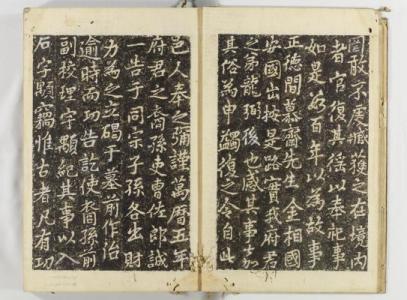 罔敢不虔臧獲之在境內
者官復其徭以奉祀事
如是百年以為故事
正德間慕齋先生金相國
安國出按是路實我府君
之弟龍弼後也感其事嘉
其俗為申蠲復之令自此
邑人奉之彌謹萬曆五年
府君之裔孫吏曹佐郎誠
一告于同宗子孫各出財
力為之立碣于墓前作治
逾時而功告訖使裔孫前
副校理宇顒紀其事以入
石宇顒竊惟古者凡有功